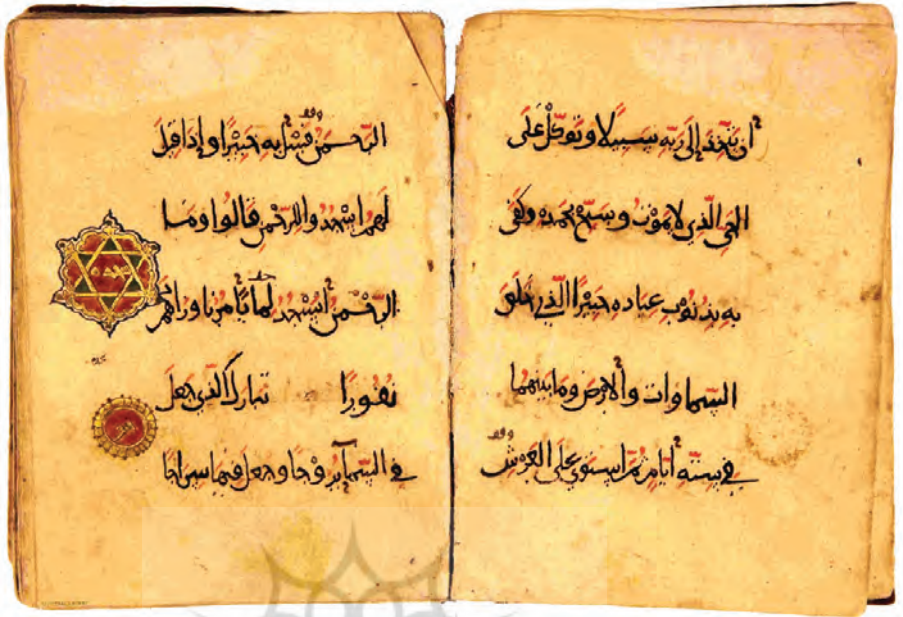 أن يتخذ إلى ربه سبيلا وتوكل على
الحي الذي لا يموت وسبح بحمده وكفى
به بذنوب عباده خبيرا الذي خلق
السماوات والأرض وما بينهما
في ستة أيام ثم استوى على العرش
الرحمن فسئل به خبيرا وإذا قيل
لهم اسجدوا للرحمن قالوا وما
الرحمن أنسجد لما تأمرنا وزادهم
نفورا تبارك الذي جعل
في السماء بروجا وجعل فيها سراجا